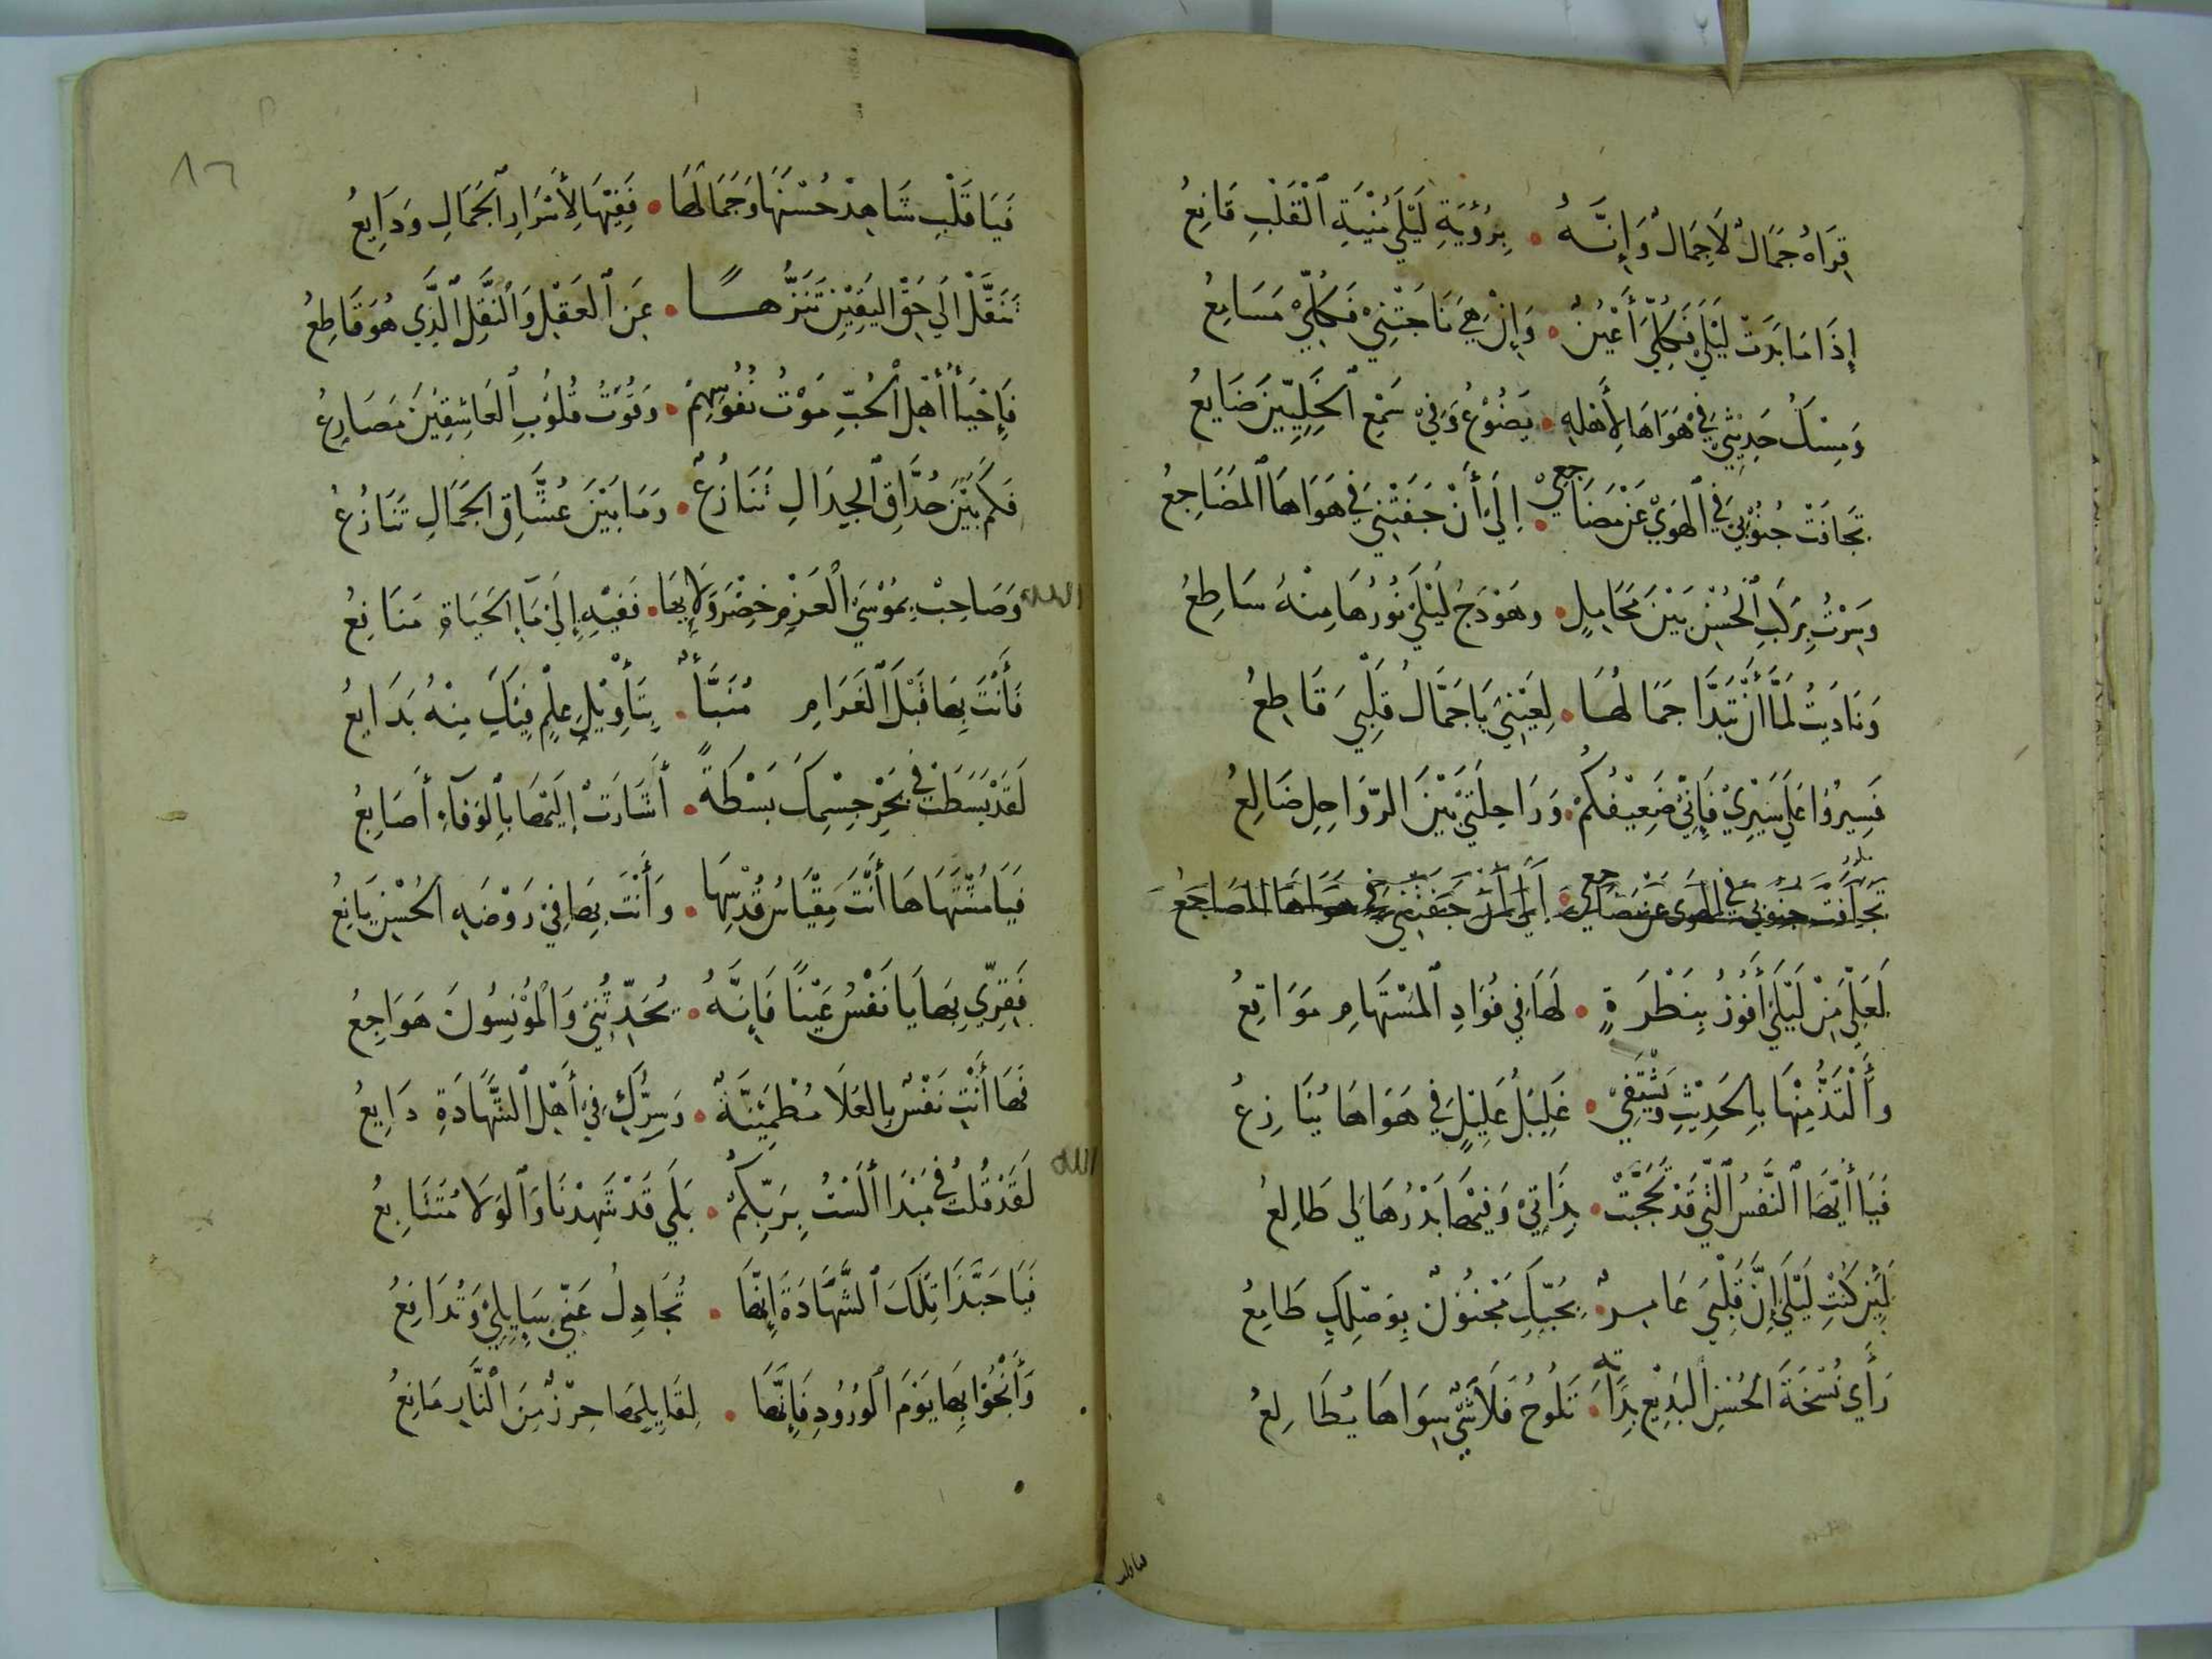 قِرَاهُ جَمَالٌ لَاجِمَالٌ وَإِنَّهُ • بِرُؤْيَةِ لَيْلَي مُنْيَةِ ٱلْقَلْبِ قَانِعُ
إِذَا مَا بَدَتْ لَيْلَي فَكُلِّيَ أَعْيُنٌ • وَإِنْ هِيَ نَاجَتْنِيْ فَكُلِّيْ مَسَامِعُ
وَمِسْكُ حَدِيْثِيْ فِيْ هَوَاهَا لِأَهْلِهِ • يَضُوْعُ وَفِيْ سَمْعِ ٱلْخَلِيِّيْنَ ضَايِعُ
تَجَافَتْ جُنُوْبِيْ فِي ٱلْهَوَيْ عَنْ مَضَاجِعِيْ • إِلَيْ أَنْ جَفَتْنِيْ فِيْ هَوَاهَا ٱلمَضَاجِعُ
وَسِرْتُ بِرَكْبِ ٱلْحُسْنِ بَيْنَ مَحَامِلٍ • وهَوْدَجُ لَيْلَيْ نُوْرُهَا مِنْهُ سَاطِعُ
وَنَادَيتُ لَمَّا أَنْ تَبَدَّا جَمَالُهَا • لِعَيْنِيْ يَا جَمَّالُ قَلْبِيَ قَاطِعُ
فَسِيْرُوْا عَلَي سَيْرِيْ فَإِنِّيْ ضَعِيْفُكُمْ • وَرَاحِلَتِيْ بَيْنَ الرّوَاحِلِ ضَالِعُ
تَجَافَتْ جنوبي في الهوي عن مضاجعي • إلي أن جفتني في هواها المضاجعُ
لَعَلِّيَ مِنْ لَيْلَيْ أَفُوْزُ بِنَظْرَةٍ • لَهَا فِي فُوَادِ ٱلمُسْتَهَامِ مَوَاقِعُ
وأَلْتَذُّ مِنْهَا بِالحَدِيْثِ وَيَشْتَفِيْ • غَلِيْلُ عَلِيْلٍ فِيْ هَوَاهَا يُنَازِعُ
فَيَا أَيُّهَا ٱلنَّفسُ ٱلَّتِيْ قَدْ تَحَجَّبَتْ • بِذَاتِيْ وَفِيْهَا بَدْرُهَا لِي طَالِعُ
لَئِنْ كُنْتِ لَيْلَيْ إِنَّ قَلْبِيَ عَامِرٌ • بِحُبِّكِ مَجْنُوْنٌ بِوَصْلِكِ طَامِعُ
رَأَي نُسْخَةَ الحُسْنِ ٱلبَدِيْعِ بِذَاته • تَلُوحُ فَلَا شَيْ سِوَاهَا يُطَالِعُ
فيا قلب
١٦
فَيَا قَلْبِ شَاهِدْ حُسْنَهَا وَجَمَالَهَا • فَفِيْهَا لِأَسْرَارِ ٱلجَمَالِ وَدَايِعُ
تَنَقَّلْ الَي حَقِّ اليَقِيْنِ تَنَزُّهًا • عَنِ ٱلعَقْلِ وَٱلنَّقْلِ ٱلَّذِي هُوَ قَاطِعُ
فَإِحْيَأُ أَهْلِ ٱلحُبِّ مَوْتُ نُفُوْسِهِمْ • وَقُوْتُ قُلُوبِ ٱلعَاشِقِيْنَ مَصَارِعُ
فَكَمْ بَيْنَ حُذَّاقِ ٱلجِدَالِ تَنَازُعٌ • وَمَا بَيْنَ عُشَّاقِ الجَمَالِ تَنَازُعُ
الله وَصَاحِبْ بِمُوْسَيَ ٱلْعَزْمِ خِضْرَ وَلَايِهَا • فَفِيْهِ إِلَيْ مَاءِ الحَيَاةِ مَنَافِعُ
فَأَنْتَ بِهَا قَبْلَ ٱلْغَرَامِ مُنَبَّأٌ • بِتَأْوِيْلِ عِلْمٍ فِيْكَ مِنْهُ بَدَايِعُ
لَقَدْ بَسَطَتْ فِيْ بَحْرِ جِسْمِكَ بَسْطَةً • أَشَارَتْ إِلَيْهَا بِٱلْوَفَاءِ أَصَابِعُ
فَيَا مُشْتَهَاهَا أَنْتَ مِقْيَاسُ قُدْسِهَا • وَأَنْتَ بِهَا فِيْ رَوْضَةِ الحُسْنِ يَانِعُ
فَقِرِّي بِهَا يَا نَفْسُ عَيْنًا فَإِنَّهُ • يُحَدِّثُنِيْ وَالْمُؤْنِسُونَ هَوَاجِعُ
فَهَا أَنْتِ نَفْسٌ بِالعُلَا مُطْمَئِنَّةٌ • وَسِرُّكِ فِيْ أَهْلِ ٱلشَّهَادَةِ ذَايِعُ
الله لَقَدْ قُلتُ فِيْ مَبْدَا أَلَسْتُ بِرَبِّكُمْ • بَلَي قَدْ شَهِدْنَا وَٱلوَلَا مُتَتَابِعُ
فَيَا حَبَّذَا تِلْكَ ٱلشَّهَادَةُ إِنَّهَا • تُجَادِلُ عَنِّيْ سَايِلِيْ وَتُدَافِعُ
وَأَنْجُوْا بِهَا يَوْمَ ٱلوُرُودِ فَإِنَّهَا • لِقَايِلِهَا حِرْزٌ مِنَ ٱلْنَّارِ مَانِعُ